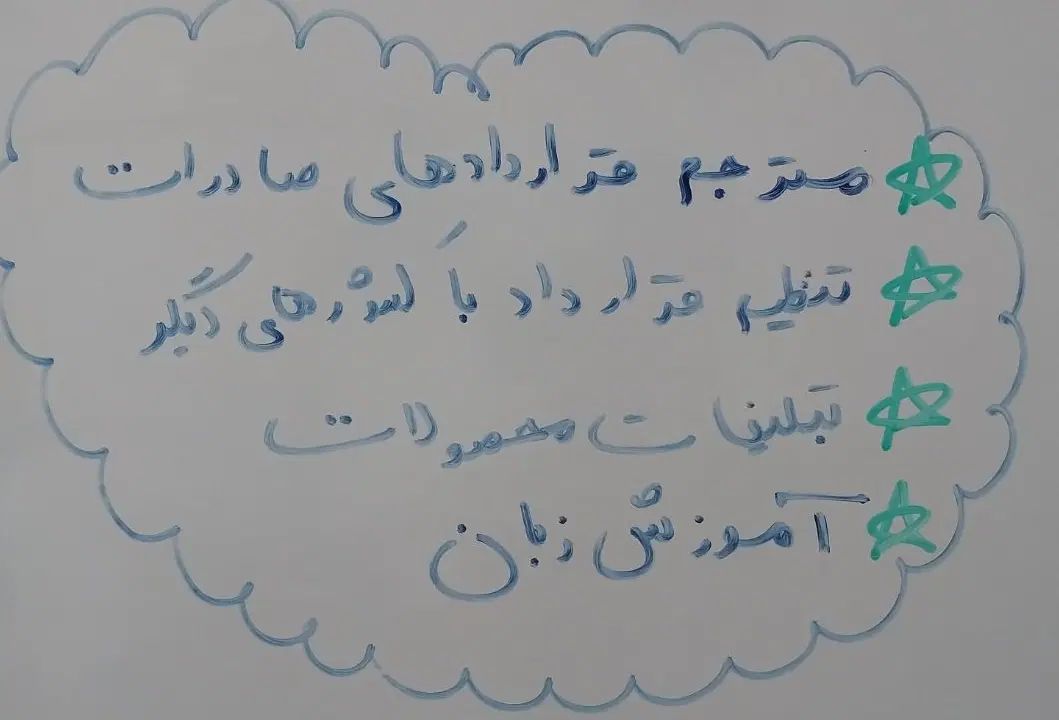 مترجم قراردادهای صادرات
تنظیم قرارداد با کشورهای دیگر
تبلیغات محصولات
آموزش زبان